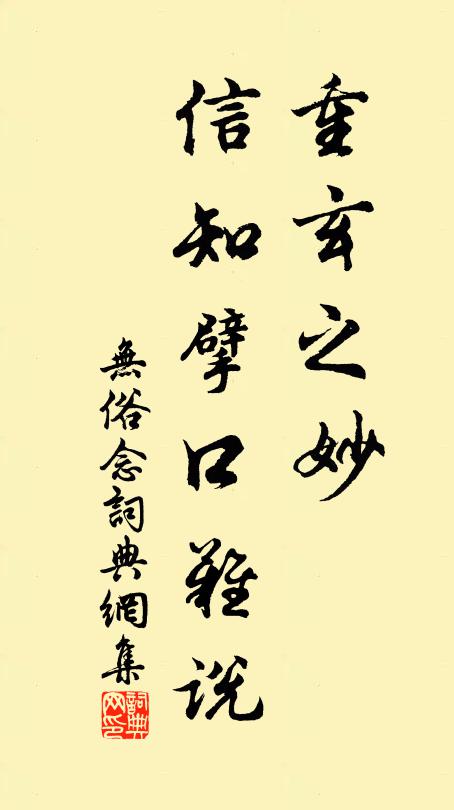 重玄之妙
信知擘口難説
無俗念詞典網集
詞典网印